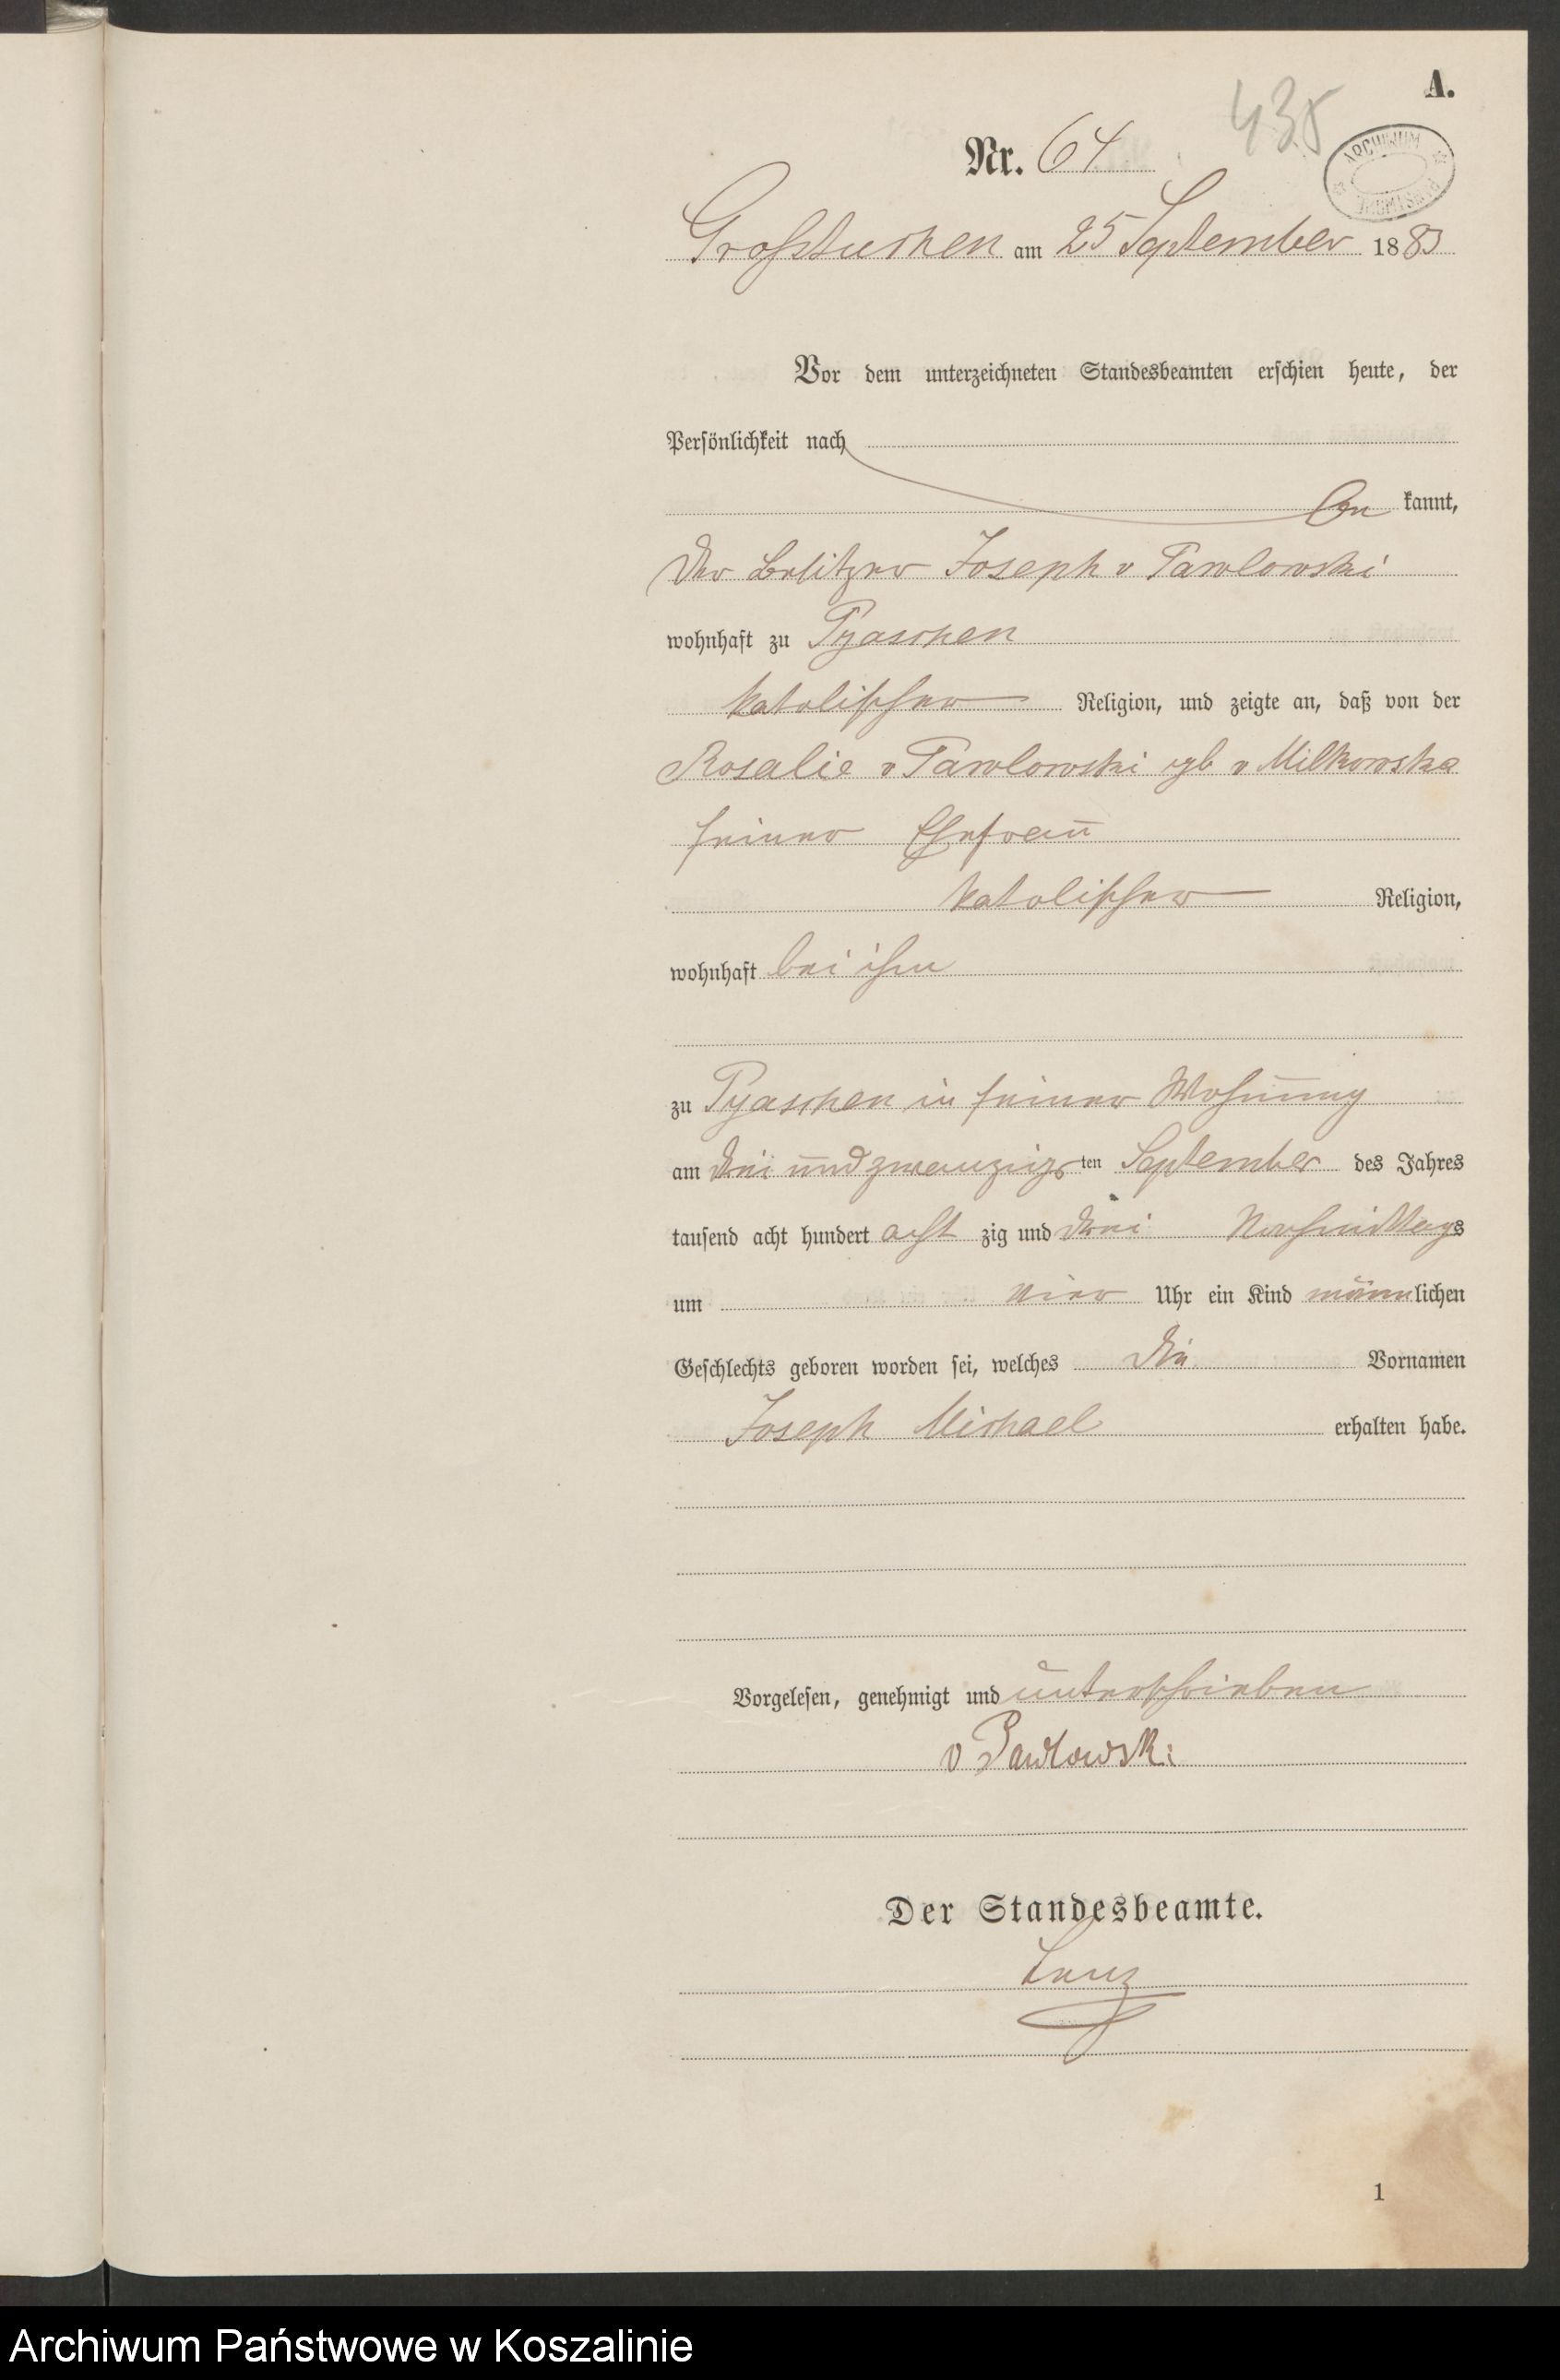 A.
435
Nr. 64
ARCHIWUM
Großtuchen am 25 September 1883
Vor dem unterzeichneten Standesbeamten erschien heute, der
Persönlichkeit nach
be kannt,
der Besitzer Joseph v Pawlowski
wohnhaft zu Pyaschen
katolischer Religion, und zeigte an, daß von der
Rosalie v Pawlowski gb v Milkowska
seiner Ehefrau
katolischer Religion,
wohnhaft bei ihm
zu Pyaschen in seiner Wohnung
am drei und zwanzigsten September des Jahres
tausend acht hundert acht zig und drei Nachmittags
um vier Uhr ein Kind männlichen
Geschlechts geboren worden sei, welches die Vornamen
Joseph Michael erhalten habe.
Vorgelesen, genehmigt und unterschrieben
v Pawlowski
Der Standesbeamte.
1
Archiwum Państwowe w Koszalinie